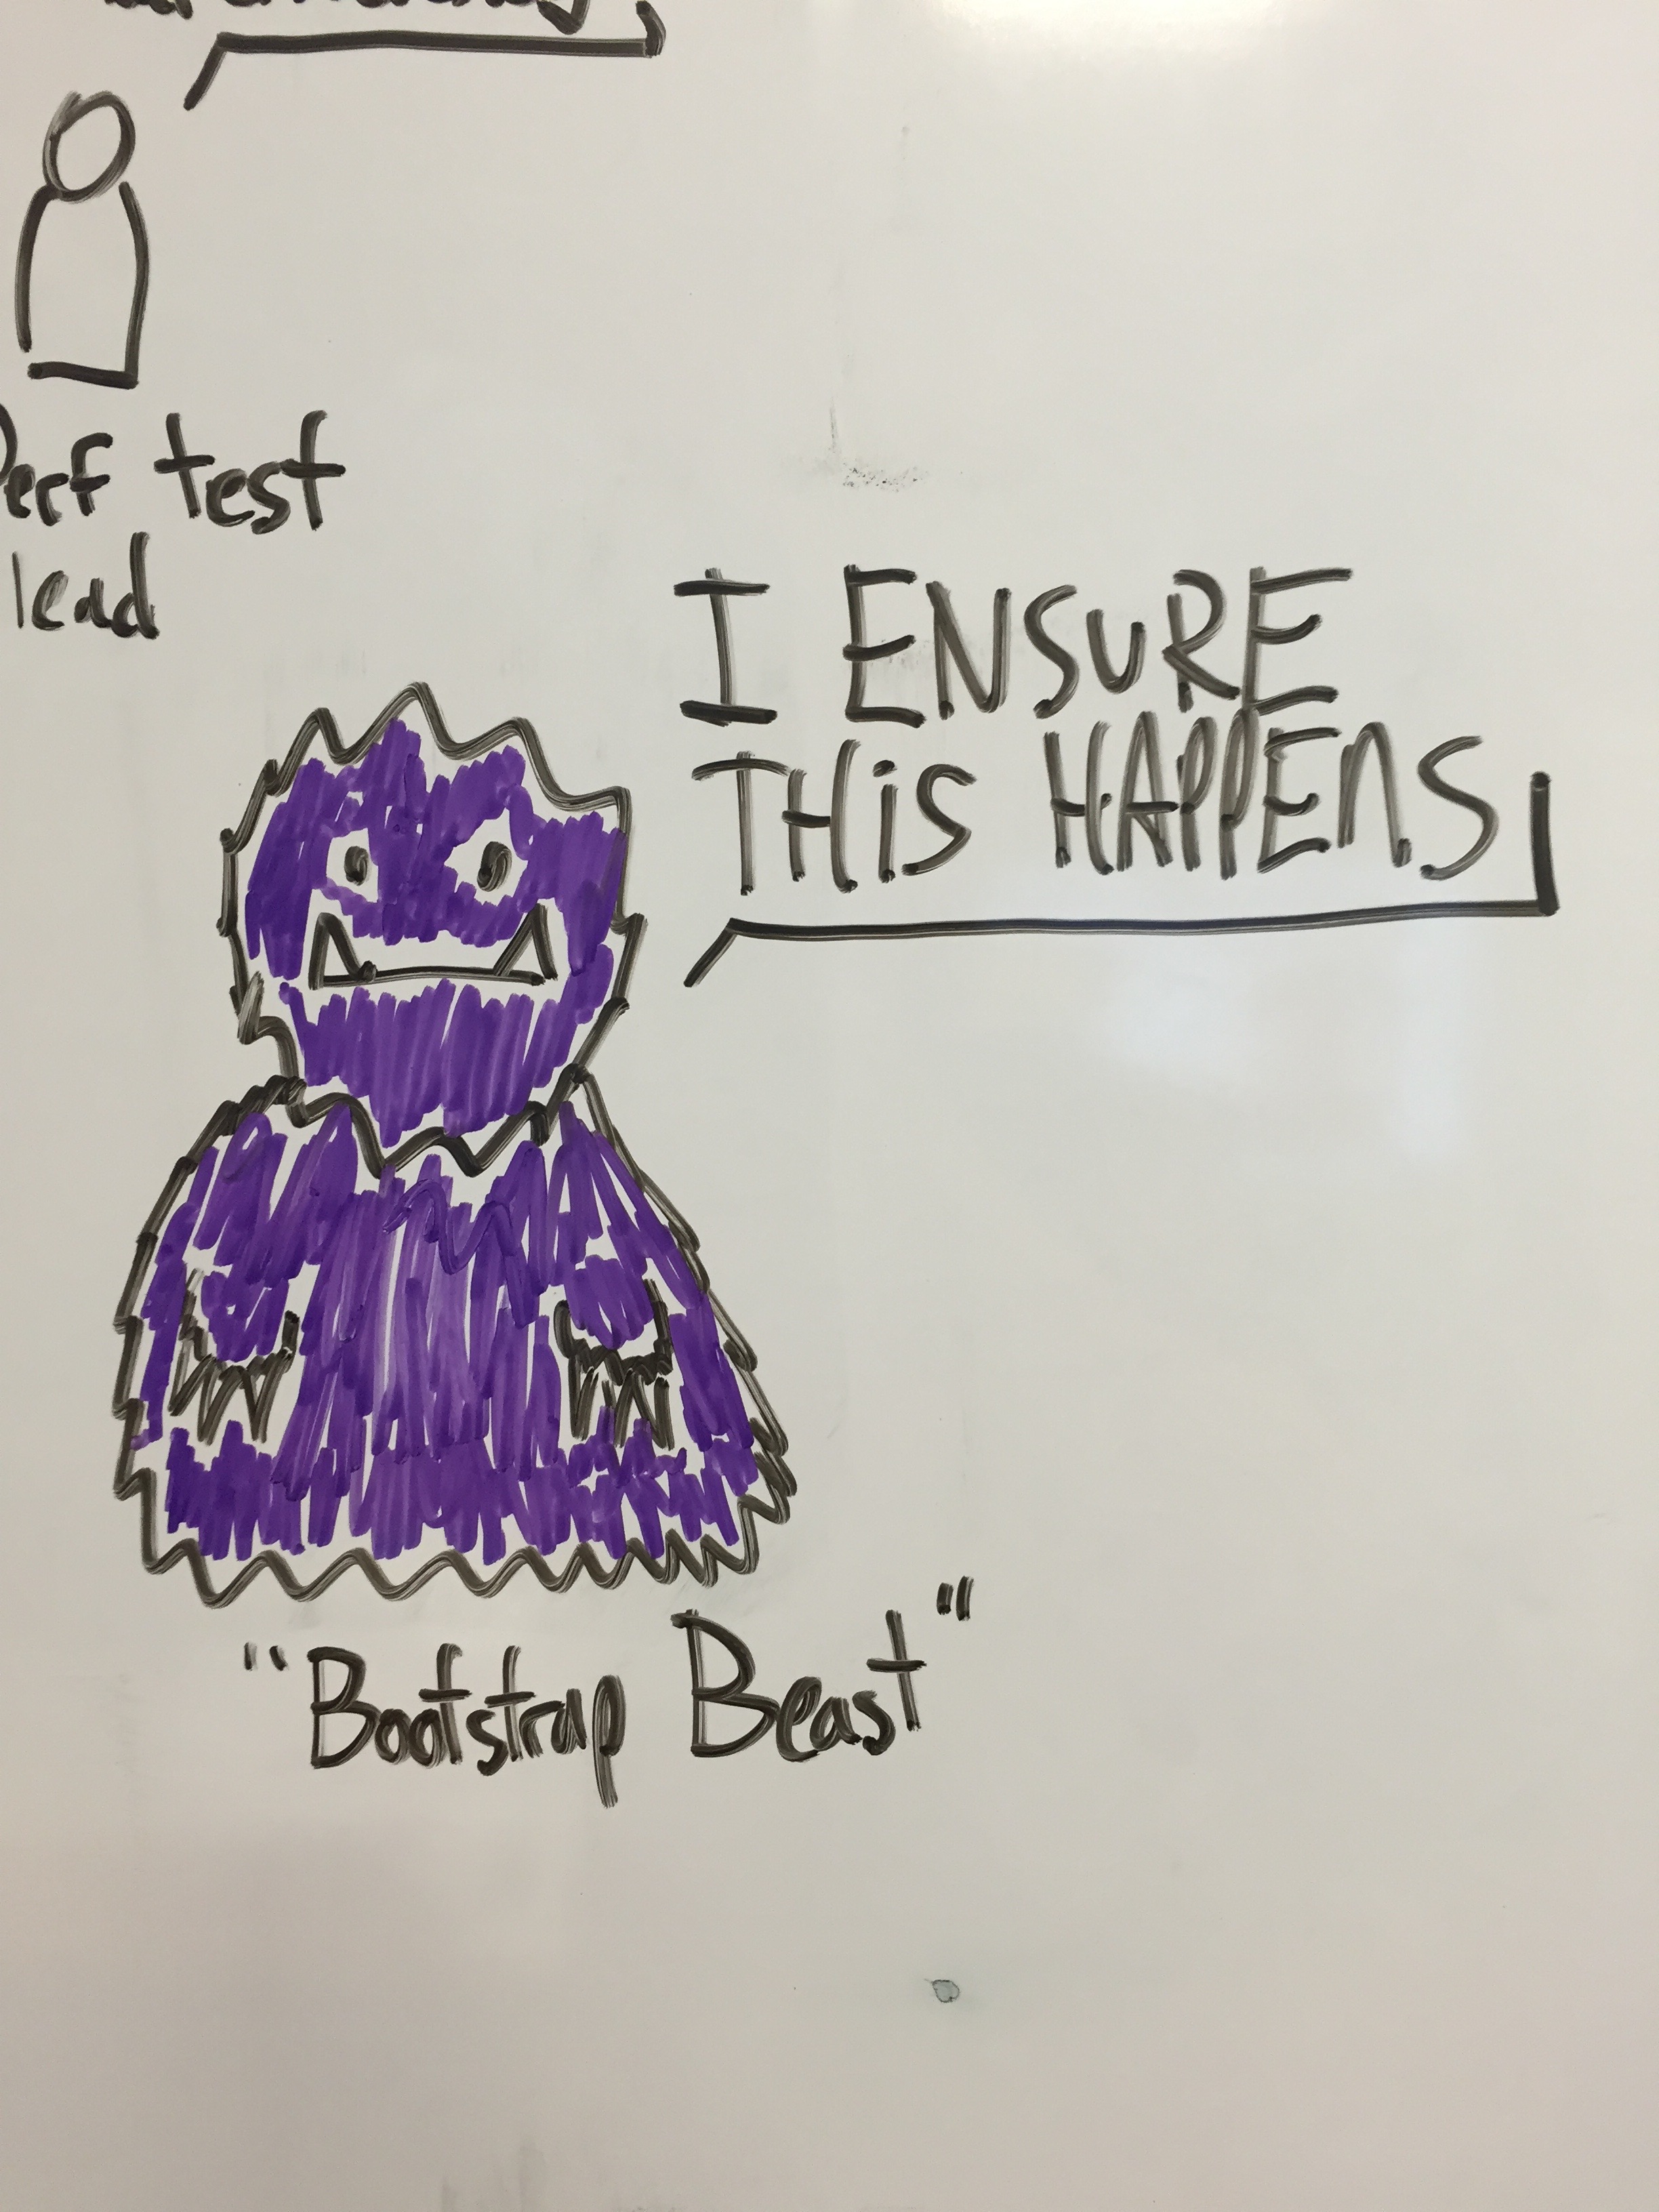 Perf test
lead
I ENSURE
THiS HAPPEnS
"Bootstrap Beast"